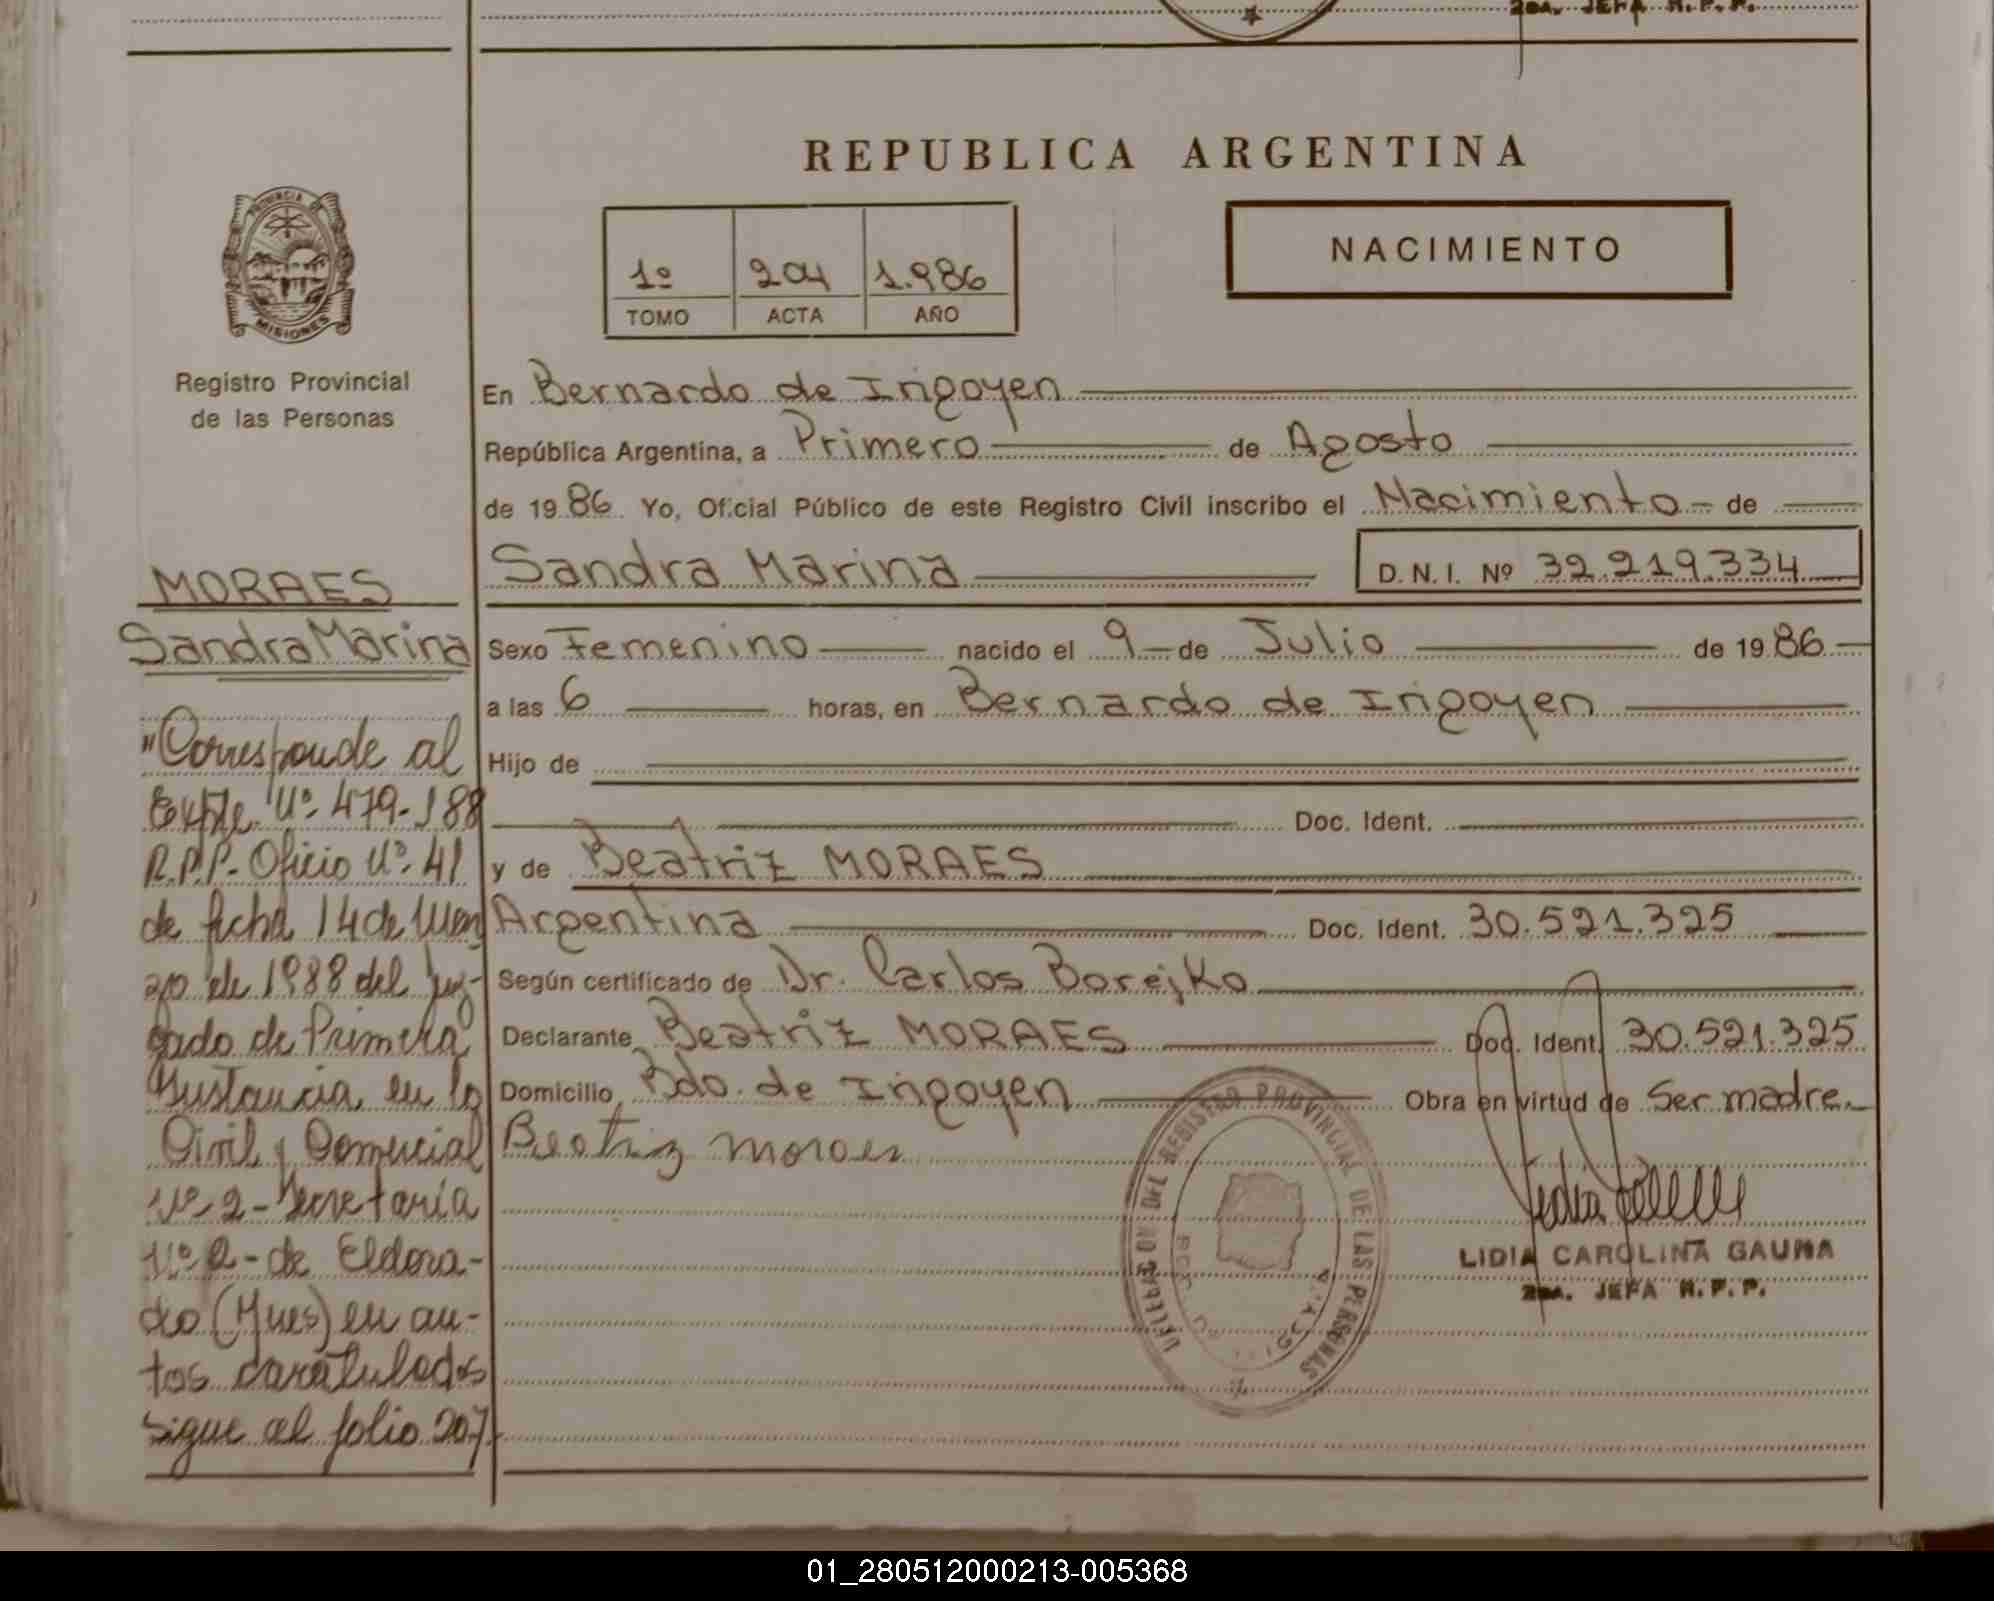 2DA. JEFA R.P.P.
REPUBLICA ARGENTINA
PROVINCIA DE
MISIONES
Registro Provincial
de las Personas
1º 204 1.986
TOMO ACTA AÑO
NACIMIENTO
En Bernardo de Irigoyen
República Argentina, a Primero de Agosto
de 19 86 Yo, Oficial Público de este Registro Civil inscribo el Nacimiento - de
Sandra Marina D.N.I. Nº 32.219.334
MORAES
Sandra Marina
Sexo Femenino nacido el 9 de Julio de 19 86
a las 6 horas, en Bernardo de Irigoyen
Hijo de
Doc. Ident.
y de Beatriz MORAES
Argentina Doc. Ident. 30.521.325
Según certificado de Dr. Carlos Borejko
Declarante Beatriz MORAES Doc. Ident. 30.521.325
Domicilio Bdo. de Irigoyen Obra en virtud de Ser madre.
Beatriz moraes
LIDIA CAROLINA GAUNA
2DA. JEFA R.P.P.
REGISTRO PROVINCIAL DE LAS PERSONAS
"Corresponde al
Expte. Nº 479-188
R.P.P. Oficio Nº 41
de fecha 14 de Mar
zo de 1988 del Juz-
gado de Primera
Instancia en lo
Civil y Comercial
Nº 2 - Secretaría
Nº 2 - de Eldora-
do (Mnes) en au-
tos caratulados
sigue al folio 207.
01_280512000213-005368